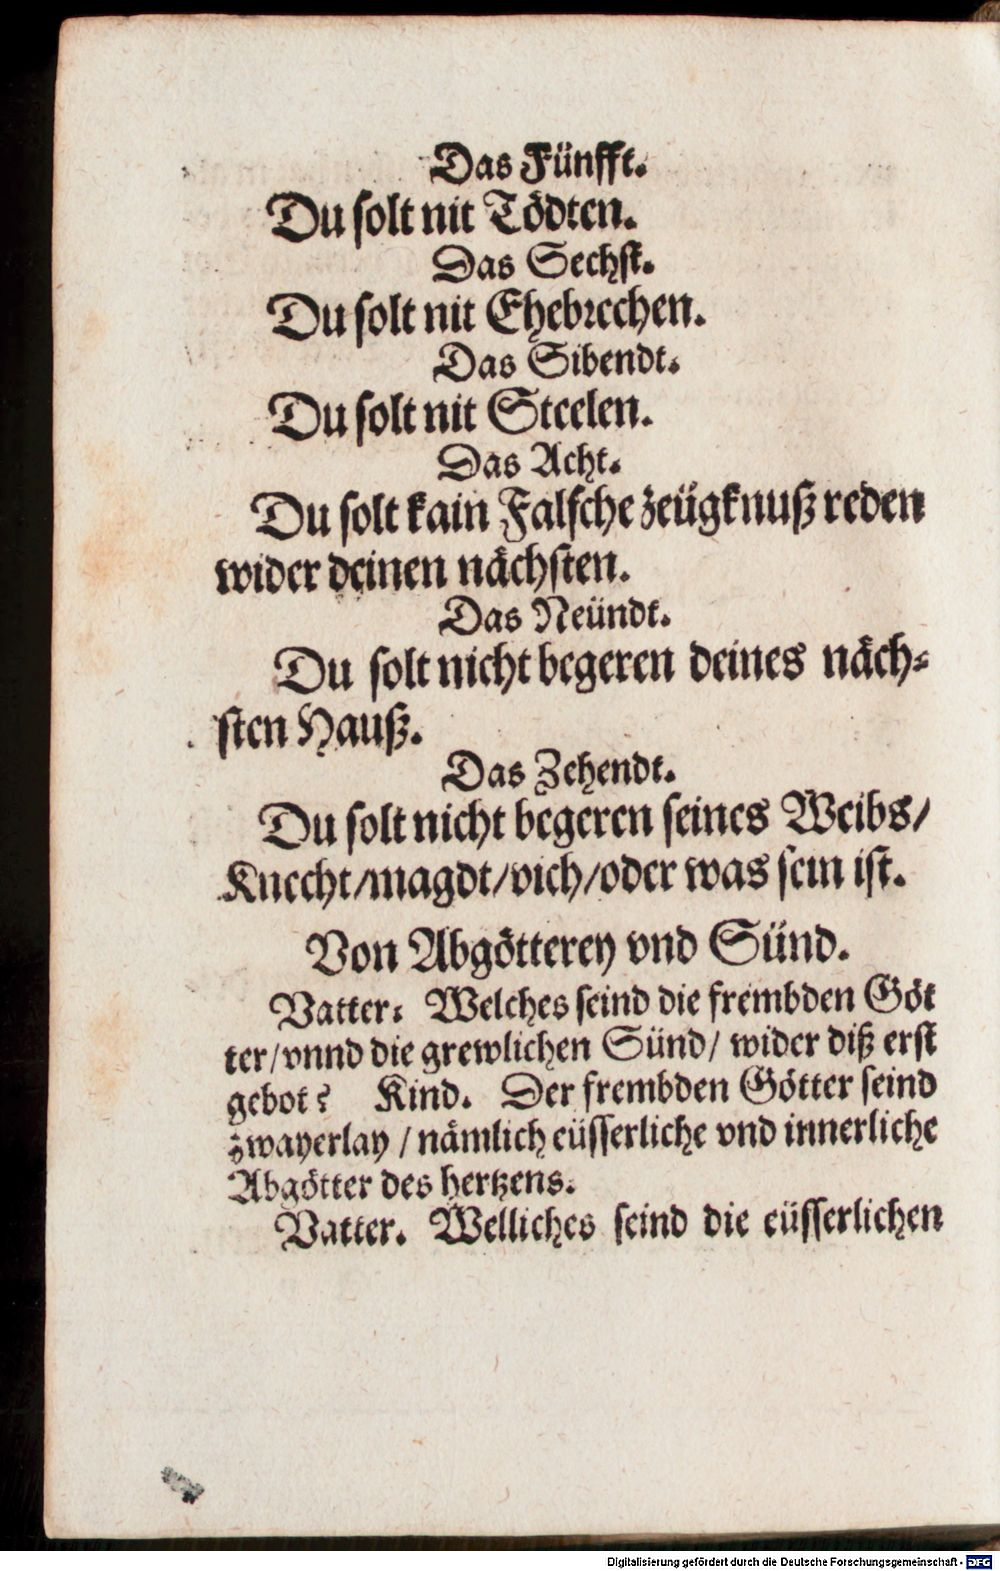 Das Fünfft.
Du solt nit Tödten.
Das Sechst.
Du solt nit Ehebrechen.
Das Sibendt.
Du solt nit Steelen.
Das Acht.
Du solt kain Falsche zeügknuß reden
wider deinen nächsten.
Das Neündt.
Du solt nicht begeren deines näch⸗
sten Hauß.
Das Zehendt.
Du solt nicht begeren seines Weibs/
Knecht/magdt/vich/oder was sein ist.
Von Abgötterey vnd Sünd.
Vatter: Welches seind die frembden Göt
ter/vnnd die grewlichen Sünd/ wider diß erst
gebot? Kind. Der frembden Götter seind
zwayerlay / nämlich eüsserliche vnd innerliche
Abgötter des hertzens.
Vatter. Welliches seind die eüsserlichen
Digitalisierung gefördert durch die Deutsche Forschungsgemeinschaft - DFG